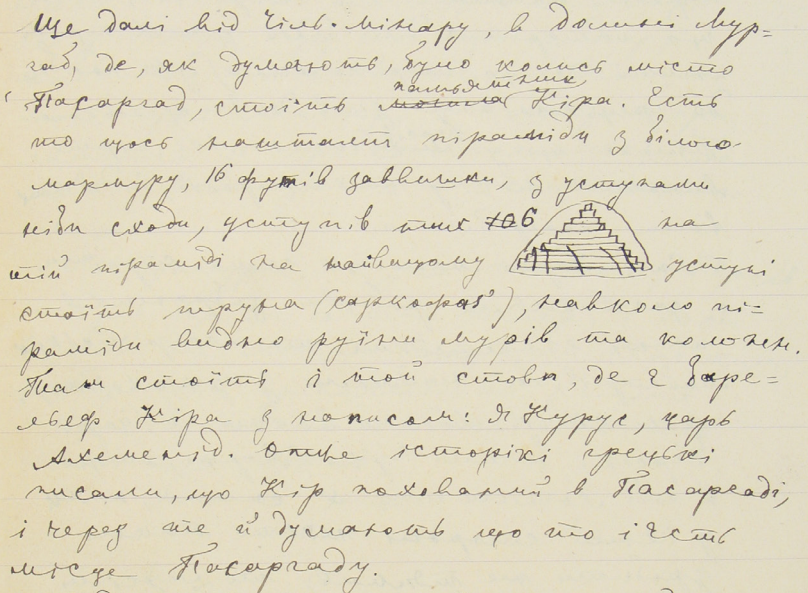 Ще далі від Чіль-Мінару, в долині Мур=
габ, де, як думають, було колись місто
Пасаргад, стоїть памьятник Кіра. Єсть
то щось нашталт піраміди з білого
мармуру, 16 футів заввишки, з уступами
ніби сходи, уступів тих 6 на
тій піраміді на найвищому уступі
стоїть труна (саркофаг), навколо пі=
раміди видно руїни мурів та колон.
Там стоїть і той стовп, де є баре=
льеф Кіра з написом: я Курус, царь
Ахеменід. Отже історікі грецькі
писали, що Кір похований в Пасаргаді,
і через те й думають що то і єсть
місце Пасаргаду.